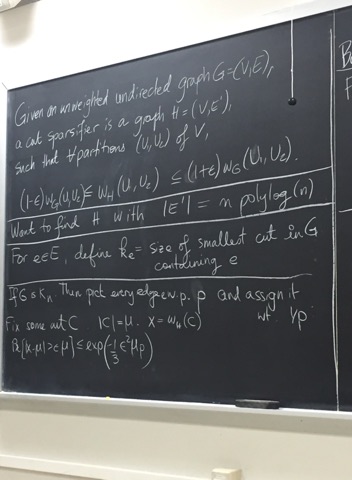 Given an unweighted undirected graph G=(V,E),
a cut sparsifier is a graph H=(V,E'),
such that ∀ partitions (U₁,U₂) of V,
(1-ε)w_G(U₁,U₂) ≤ w_H(U₁,U₂) ≤ (1+ε)w_G(U₁,U₂).
Want to find H with |E'| = n polylog(n)
For e∈E, define k_e = size of smallest cut in G
containing e
If G is K_n. Then pick every edge w.p. p and assign it
wt. 1/p
Fix some cut C |C|=μ. X = w_H(C)
Pr[|X-μ|>εμ] ≤ exp(-1/3 ε²μp)